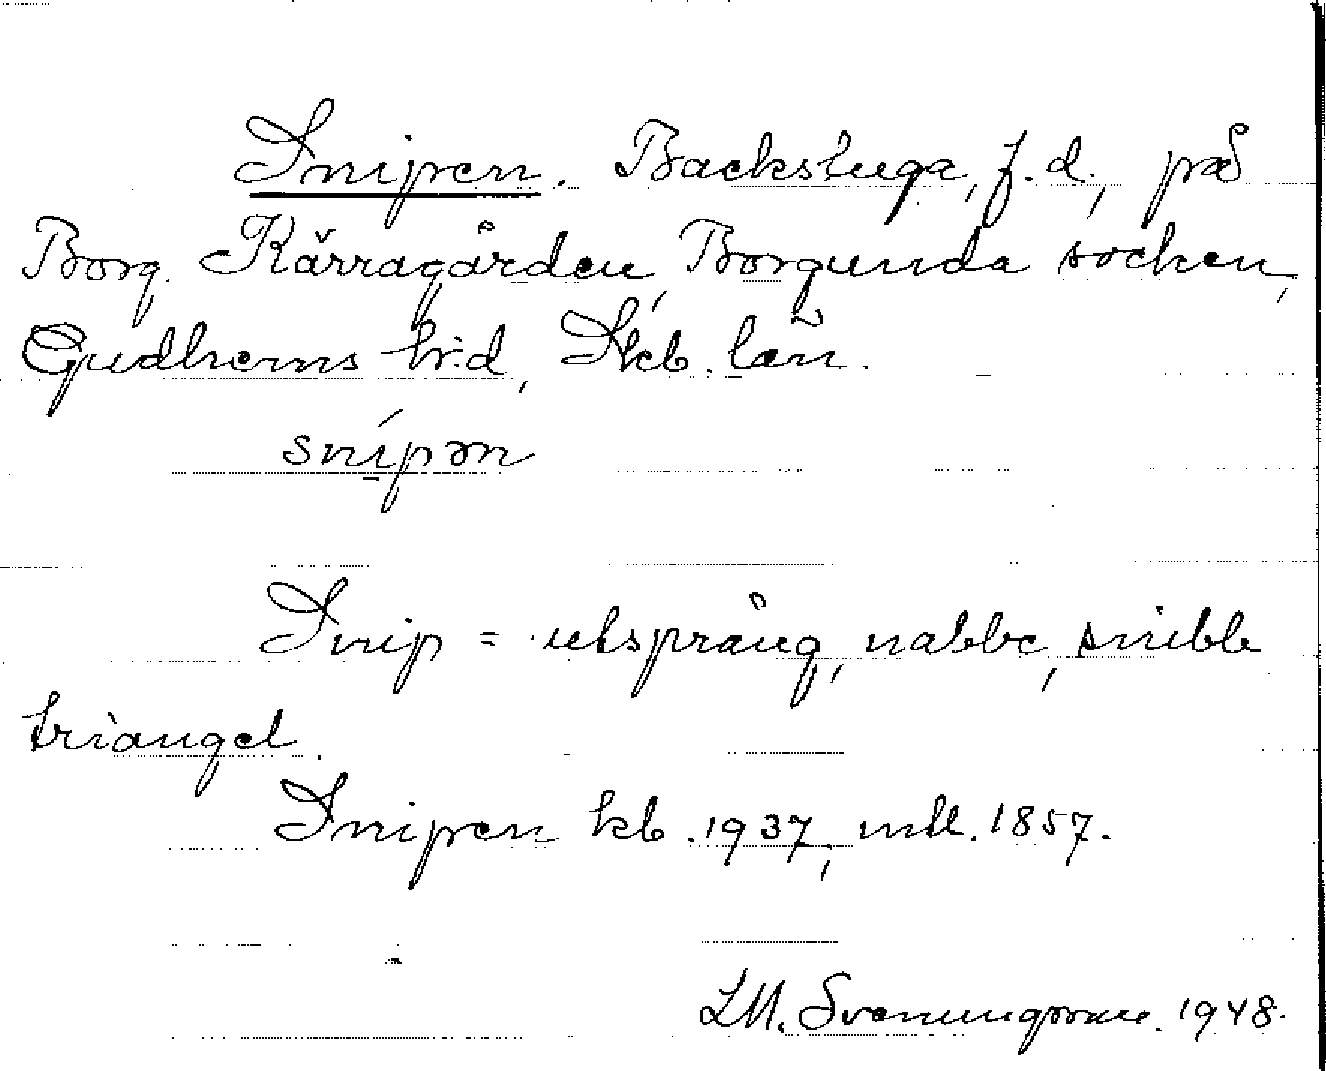 Snipen. Backstuga, f.d., på
Borg. Kärragården, Borgunda socken,
Gudhems hr:d, Skb. län.
snípən
Snip = utsprång, nabbe, snibb
triangel.
Snipen kb. 1937, mtl. 1857.
LM. Svenungsson. 1948.